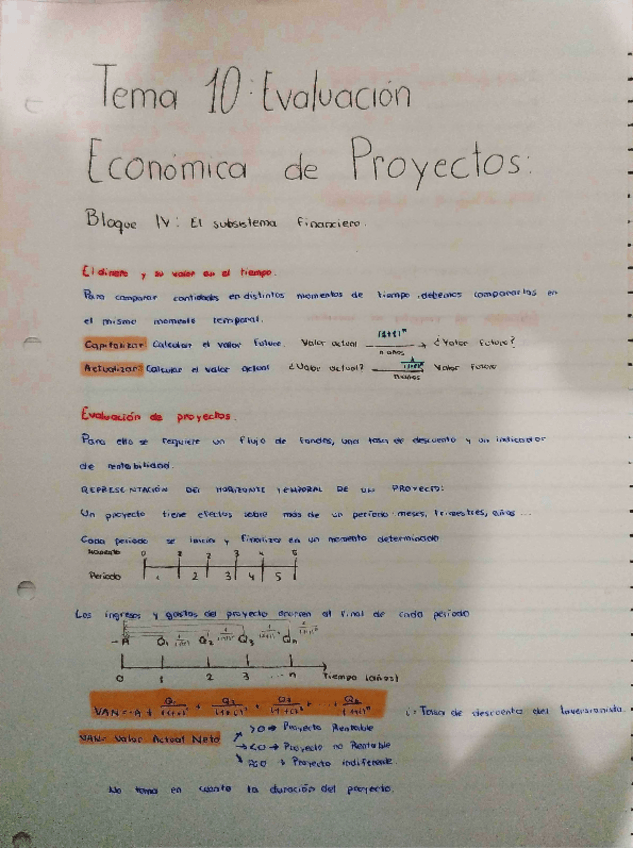 Tema 10: Evaluación
Económica de Proyectos:
Bloque IV: El subsistema financiero.
El dinero y su valor en el tiempo.
Para comparar cantidades en distintos momentos de tiempo debemos compararlas en
el mismo momento temporal.
Capitalizar: Calcular el valor futuro. Valor actual (1+i)ⁿ n años → ¿Valor futuro?
Actualizar: Calcular el valor actual ¿Valor actual? n años Valor futuro
Evaluación de proyectos.
Para ello se requiere un flujo de fondos, una tasa de descuento y un indicador
de rentabilidad.
REPRESENTACIÓN DEL HORIZONTE TEMPORAL DE UN PROYECTO:
Un proyecto tiene efectos sobre más de un período: meses, trimestres, años ...
Cada periodo se inicia y finaliza en un momento determinado
Momento 0 1 2 3 4 5
Período 1 2 3 4 5
Los ingresos y gastos del proyecto ocurren al final de cada período
-A Q₁ Q₂ Q₃ Qn
0 1 2 3 ... n Tiempo (años)
VAN = -A + Q₁/(1+i)¹ + Q₂/(1+i)² + Q₃/(1+i)³ + ... + Qn/(1+i)ⁿ i = Tasa de descuento del inversionista.
VAN: Valor Actual Neto
>0 → Proyecto Rentable
<0 → Proyecto no Rentable
=0 → Proyecto indiferente.
No toma en cuenta la duración del proyecto.